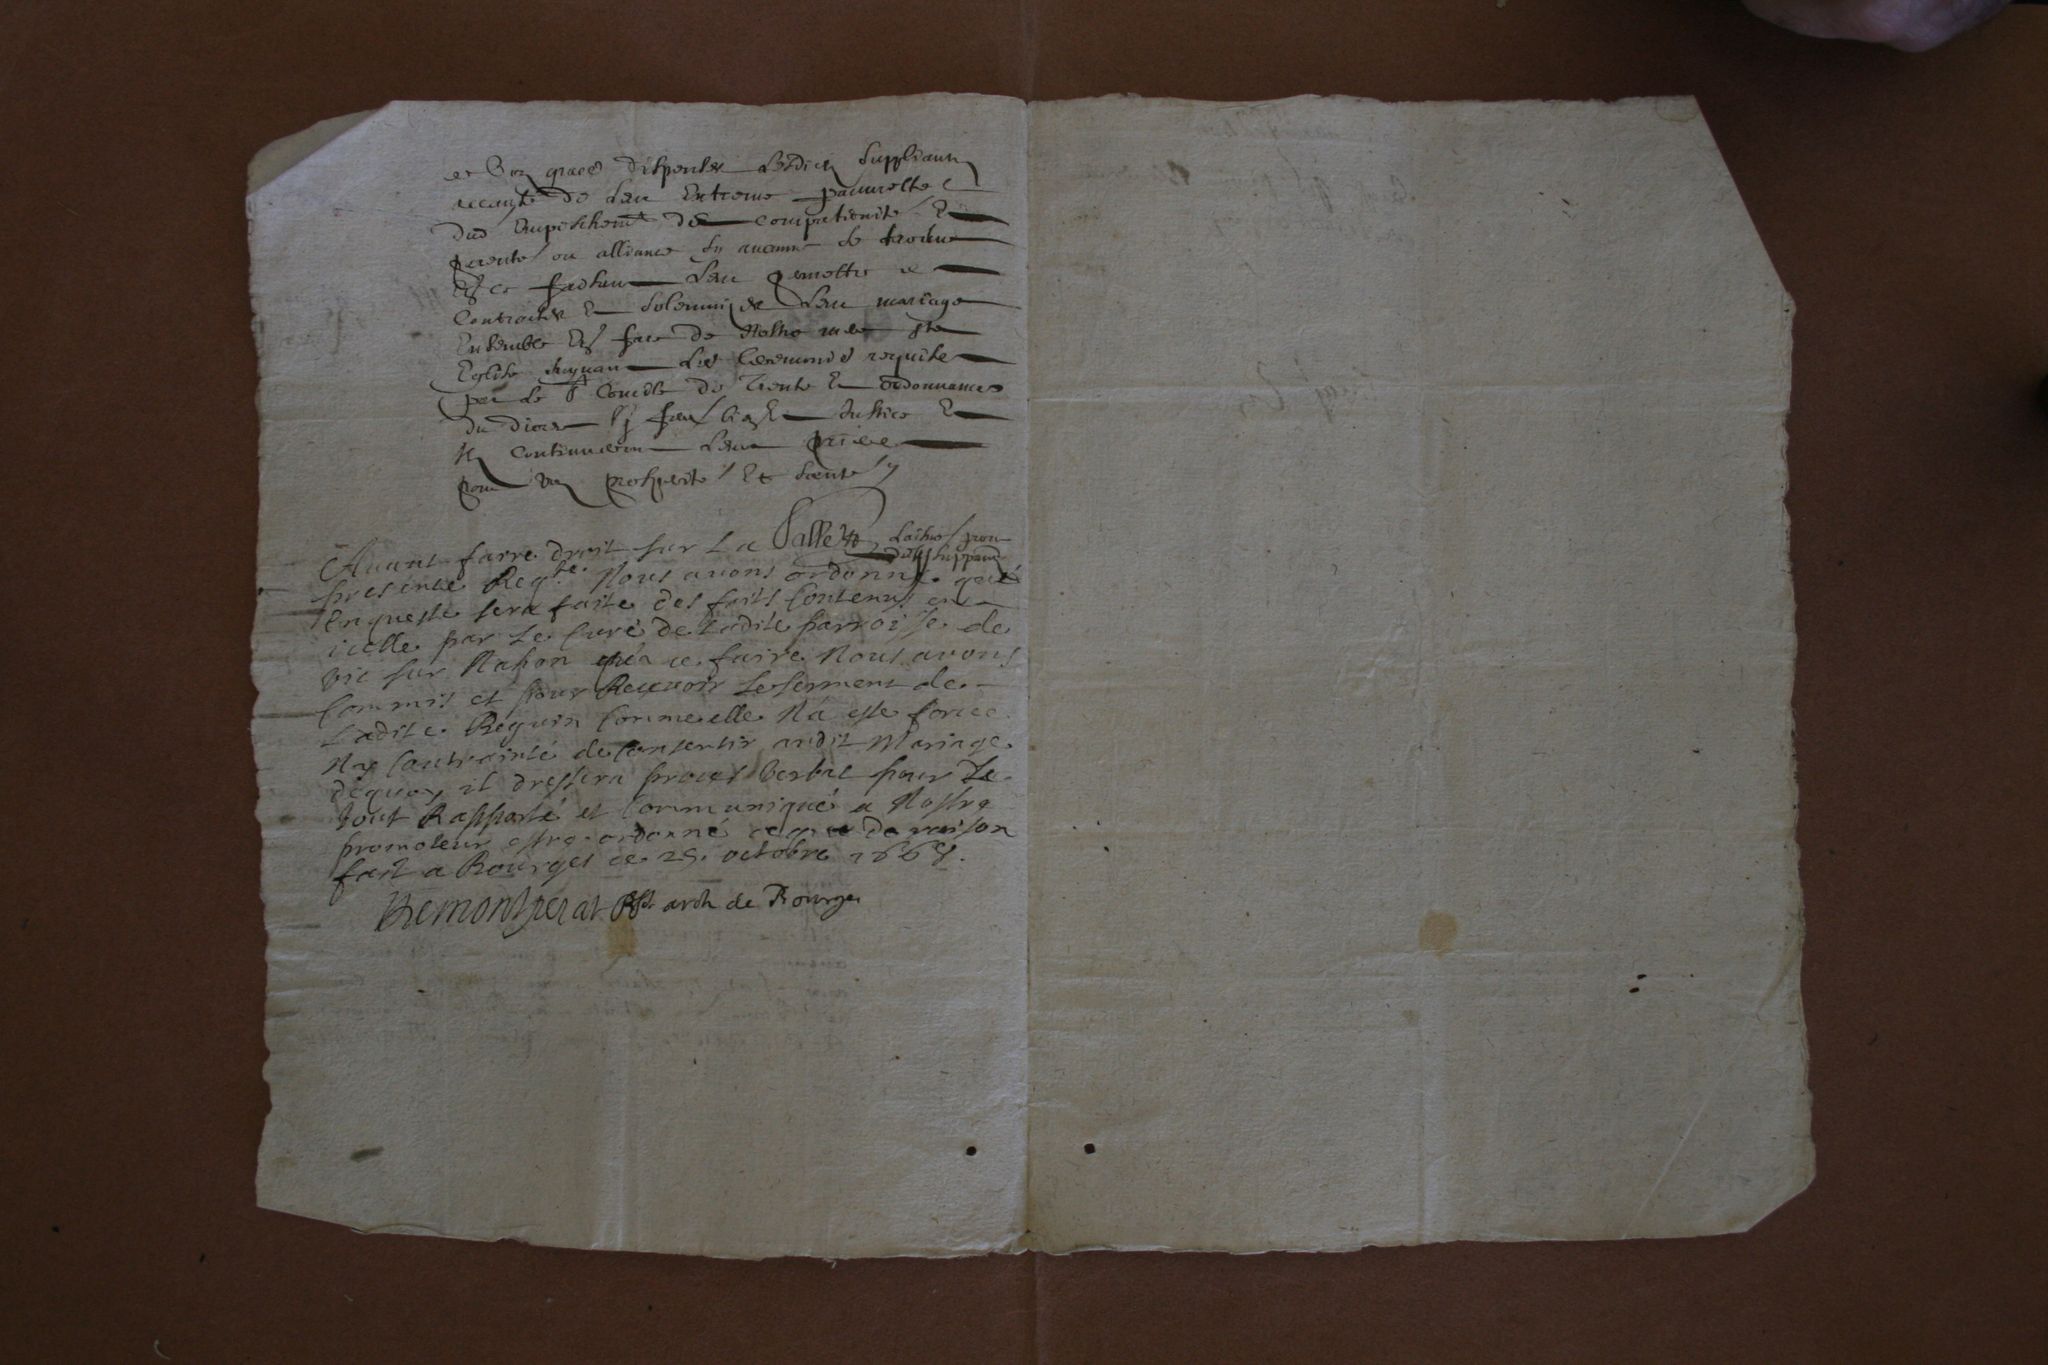 et voz graces dispenser lesdictz suppliantz
de leur extreme pauvrette
dud empeschemt de compaternite &
parente ou alliance sy aucune se trouve
Et ce faisant leur permettre
contracter & solemnizer leur mariage
Ensemble En face de nostre mere ste
Eglise suyvant les ceremonies requises
par le St Concile de Trente & ordonnances
du diocese Sy ferez bien & Justice &
Ilz continueront leurs prieres
pour voz prosperites Et sante
Avant faire droit sur la
presente Reqte. Nous avons ordonné que
enqueste sera faite des faits contenus en
icelle par le curé de ladite parroisse de
vic sur Nahon qu'a ce faire Nous avons
commis et pour Recevoir le serment de
ladite Reguin comme elle N'a esté forcee
Ny contrainte de consentir audit Mariage
dequoy il dressera proces verbal pour le
tout Rapporté et communiqué a Nostre
promoteur estre ordonné ce que de raison
fait a Bourges ce 29. octobre 1665.
arch de Bourges